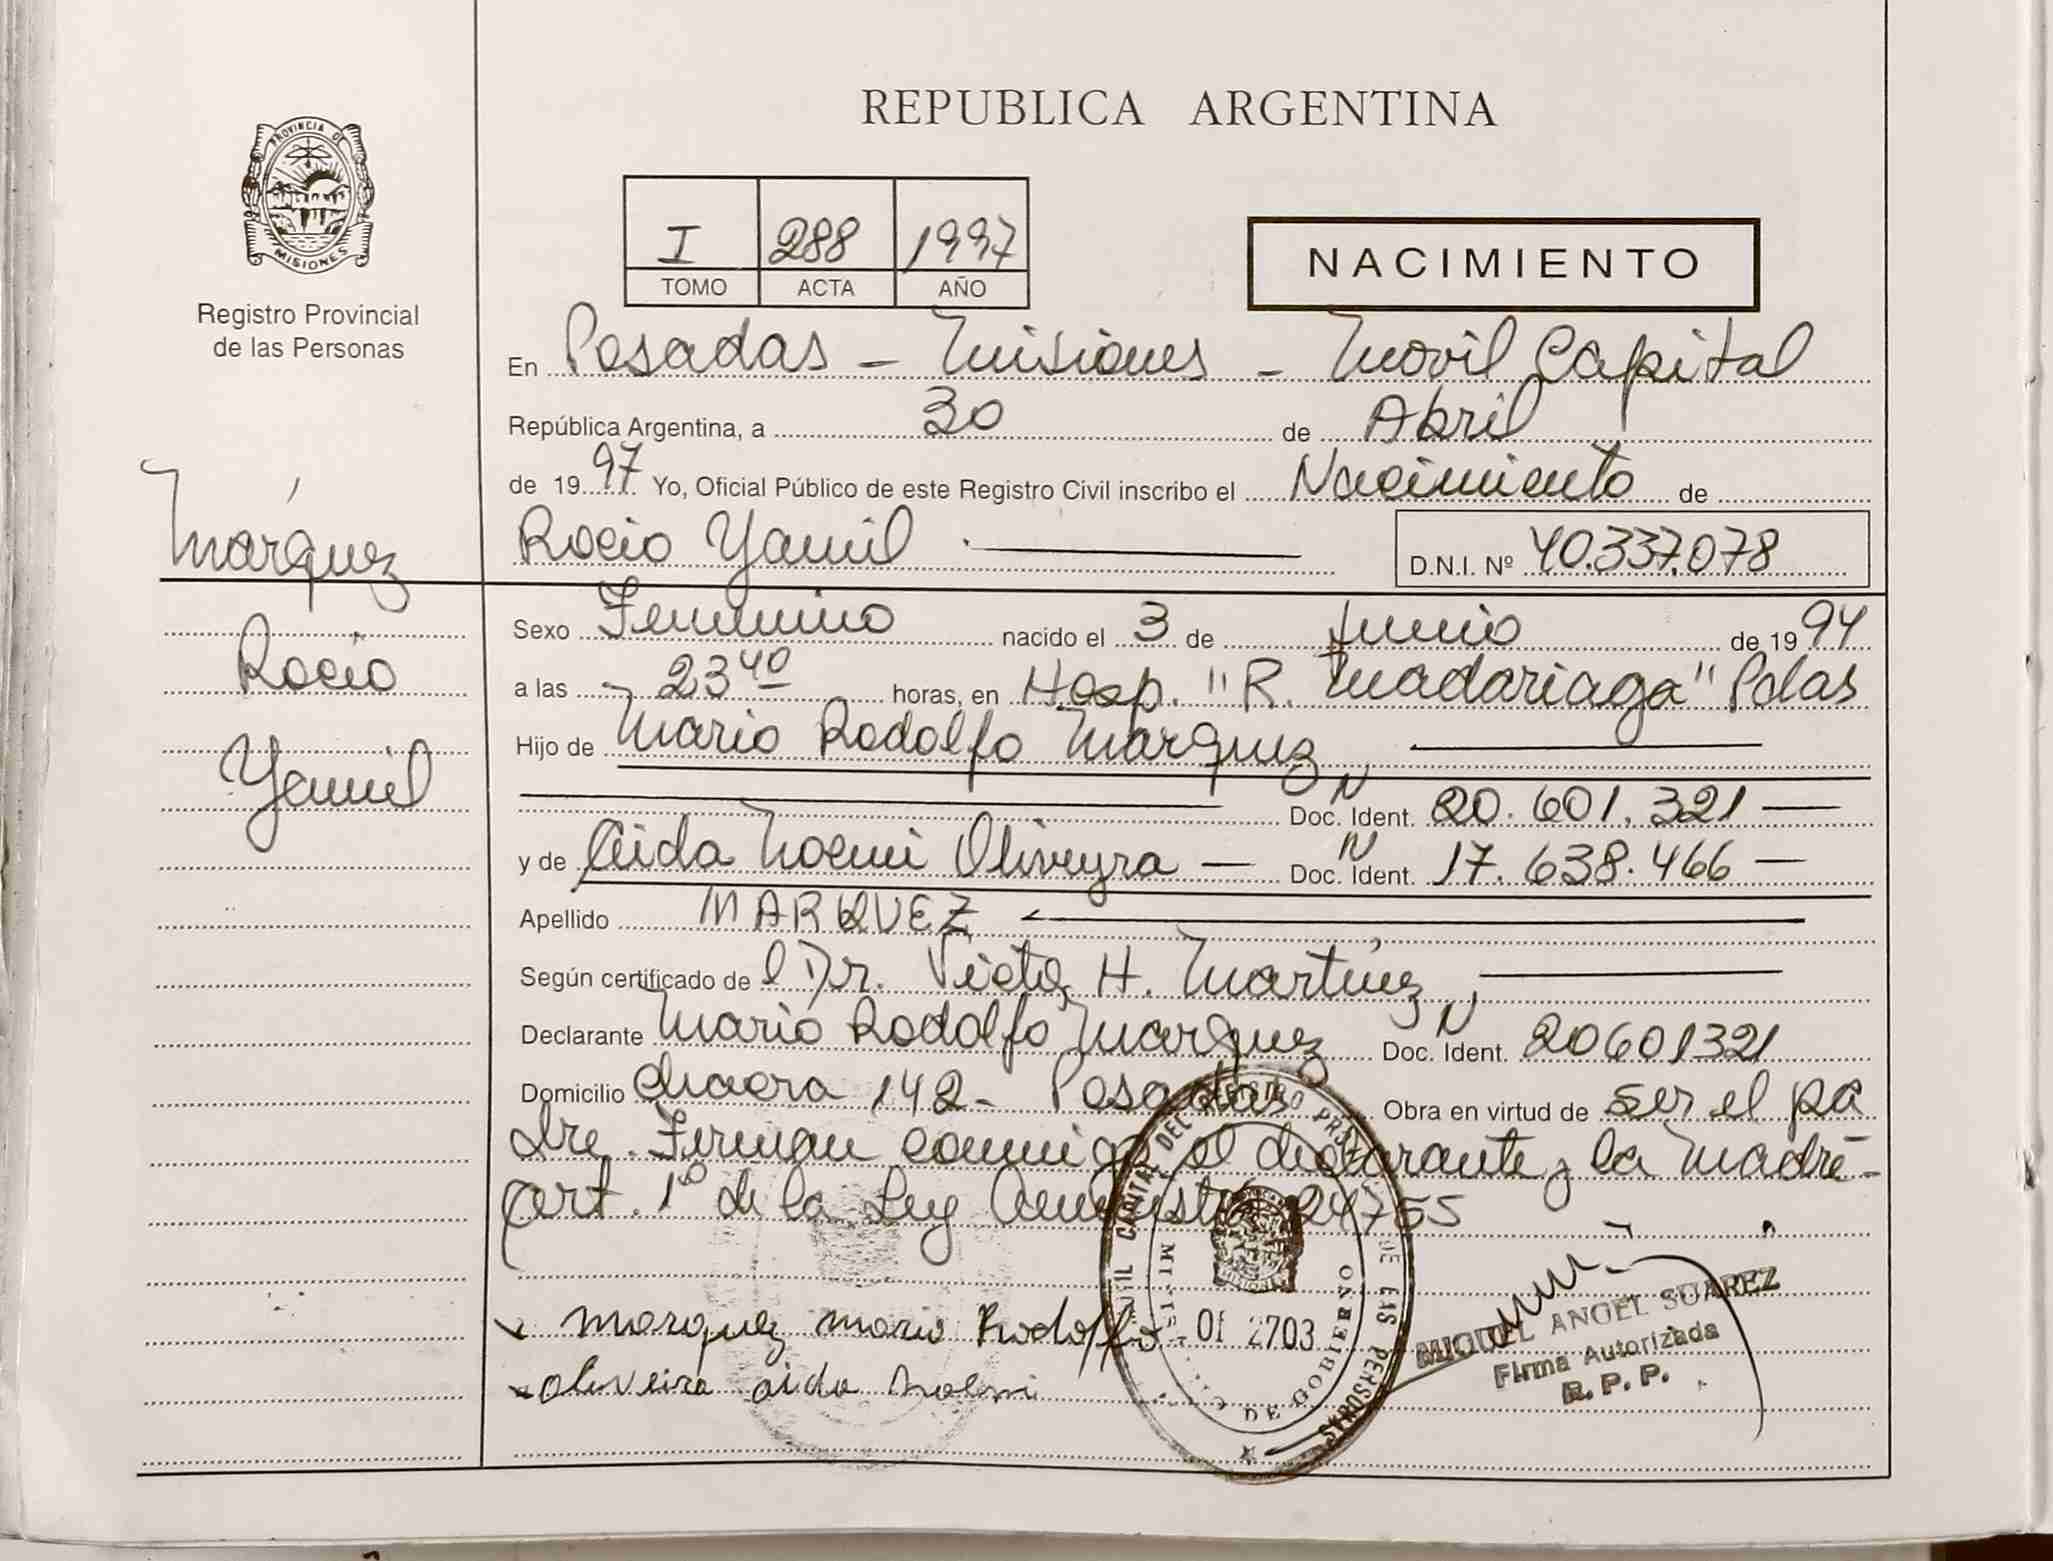 REPUBLICA ARGENTINA
PROVINCIA DE
MISIONES
Registro Provincial
de las Personas
I 288 1997
TOMO ACTA AÑO
NACIMIENTO
En Posadas - Misiones - Movil Capital
República Argentina, a 30 de Abril
de 1997 Yo, Oficial Público de este Registro Civil inscribo el Nacimiento de
Rocio Yamil
D.N.I. Nº 40.337.078
Márquez
Rocio
Yamil
Sexo Femenino nacido el 3 de Junio de 1994
a las 23 40 horas, en Hosp. "R. Madariaga" Pdas
Hijo de Mario Rodolfo Marquez
Doc. Ident. N 20.601.321
y de Aida Noemi Oliveyra Doc. Ident. N 17.638.466
Apellido MARQUEZ
Según certificado de l Dr. Victor H. Martínez
Declarante Mario Rodolfo Marquez Doc. Ident. N 20601321
Domicilio chacra 142 - Posadas Obra en virtud de ser el pa
dre. Firman conmigo el declarante y la madre -
Art. 1º de la Ley Amnistia 24755
marquez mario Rodolfo
oliveira aida noemi
MOVIL CAPITAL DEL REGISTRO PROV. DE LAS PERSONAS
DE GOBIERNO
OF 2703
MIGUEL ANGEL SUAREZ
Firma Autorizada
R. P. P.